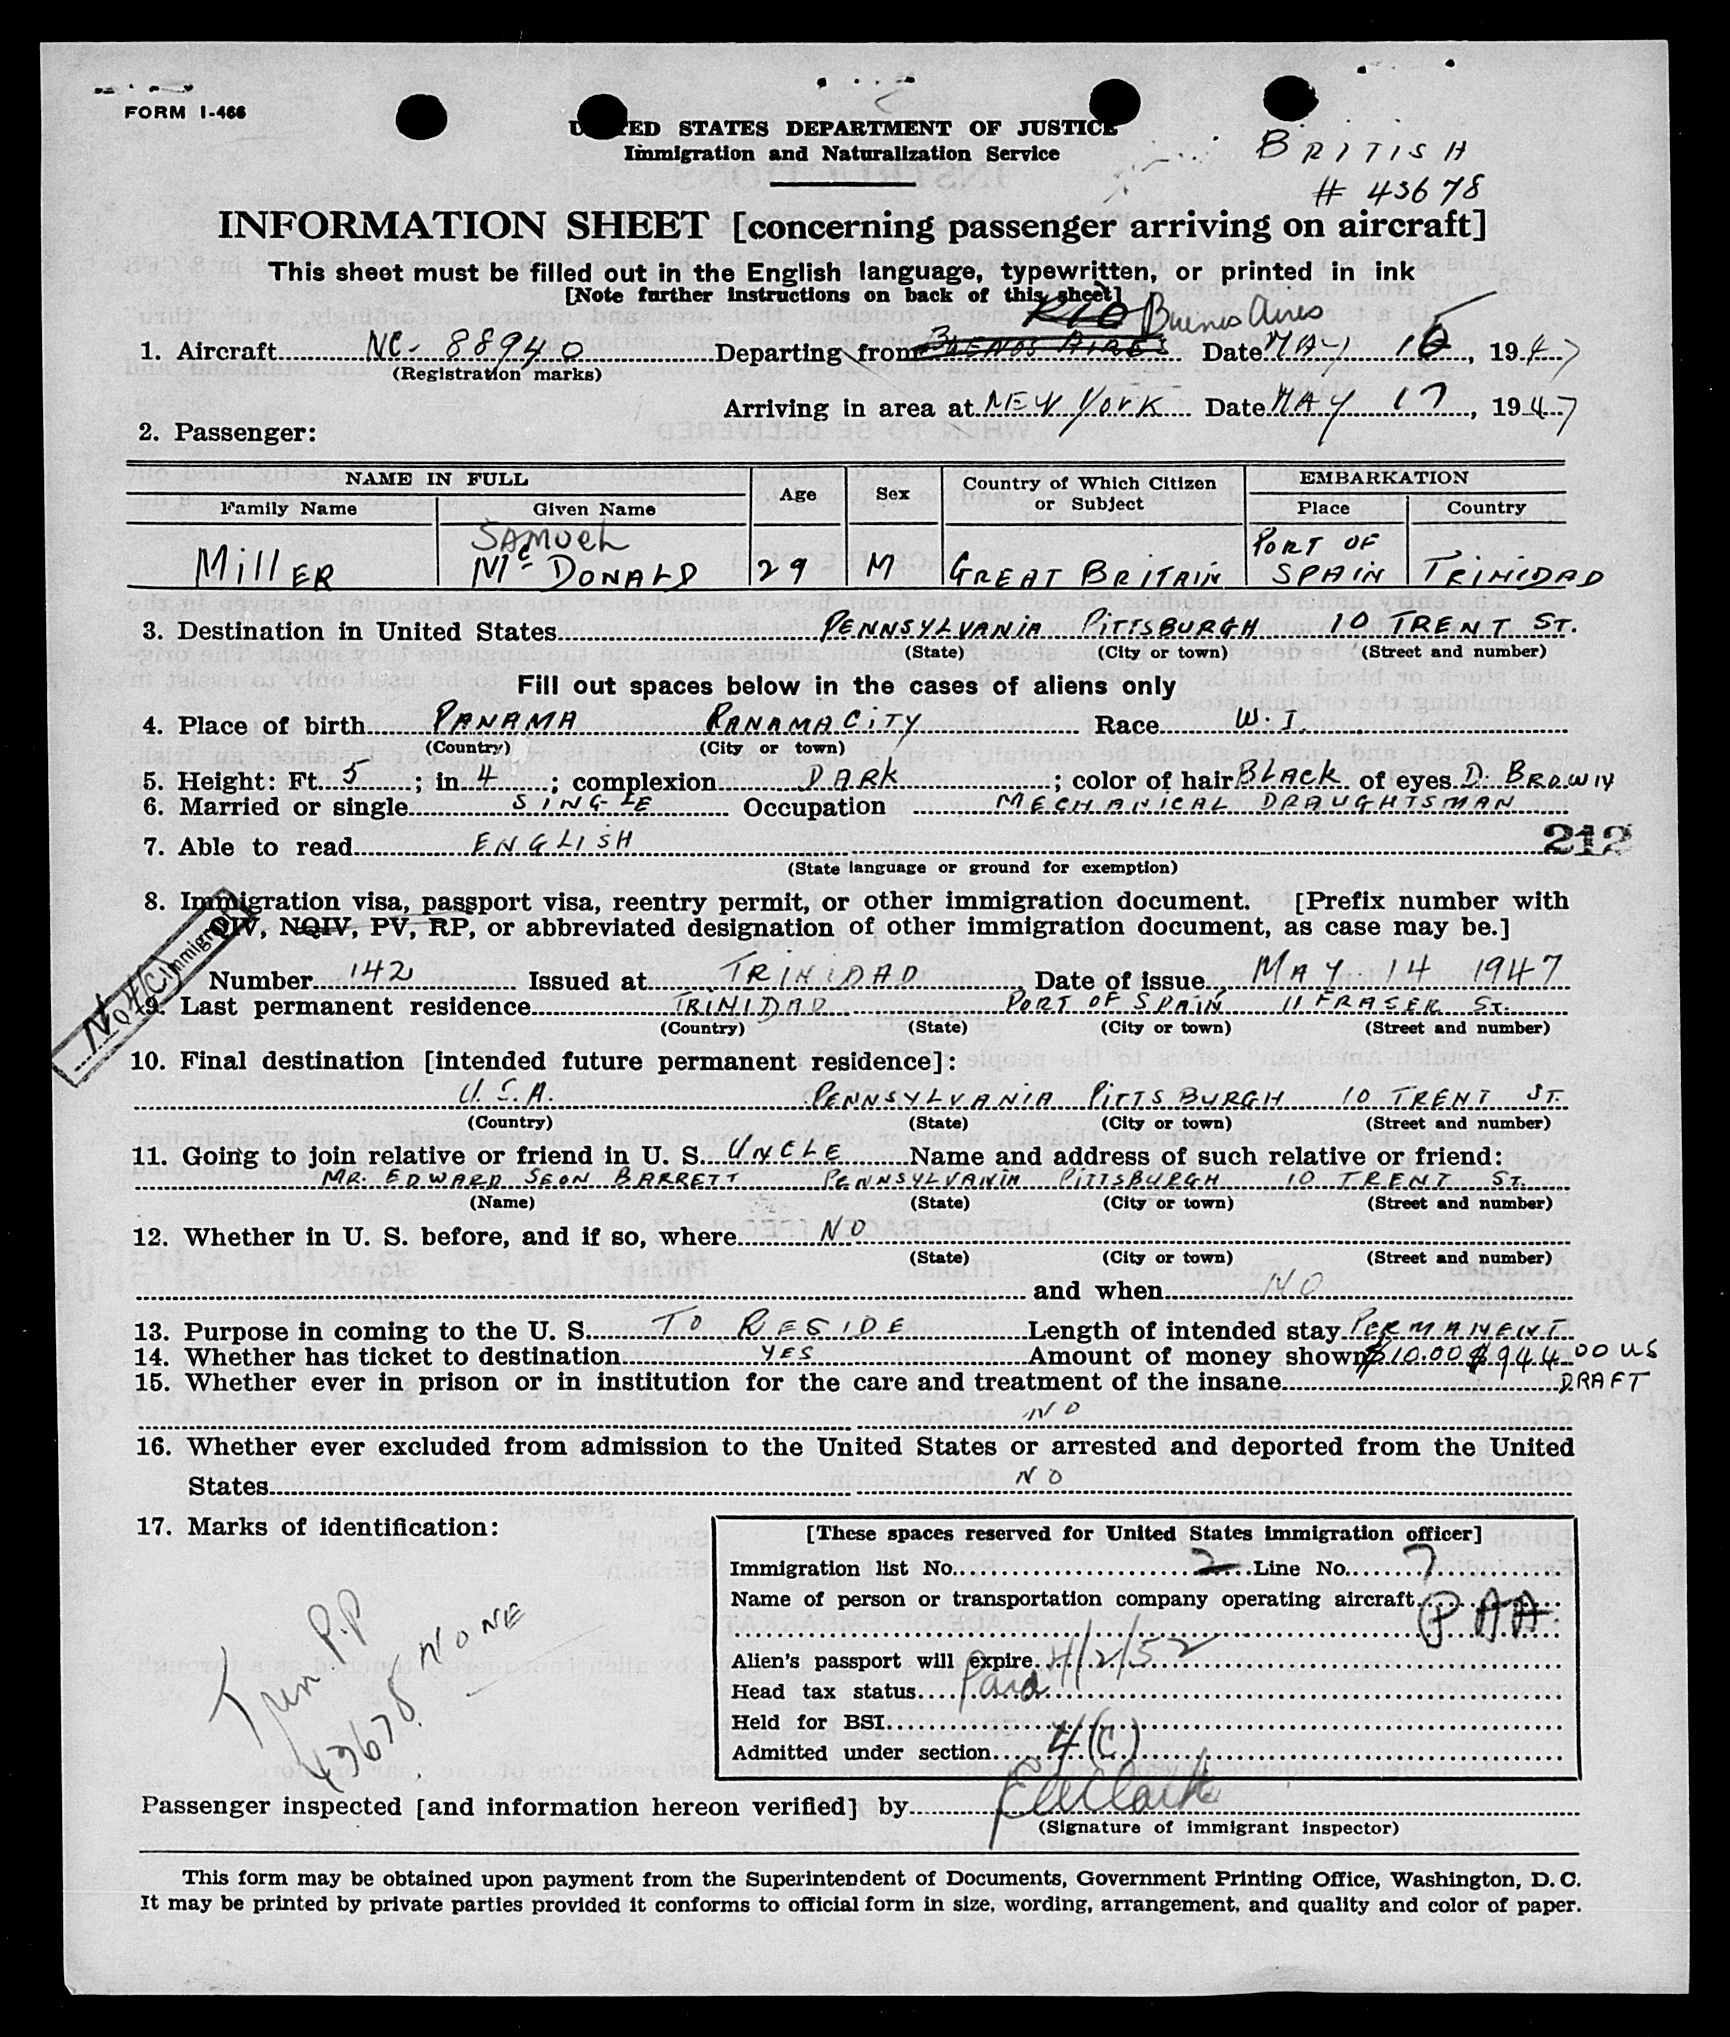 FORM I-466
UNITED STATES DEPARTMENT OF JUSTICE
Immigration and Naturalization Service
BRITISH
# 43678
INFORMATION SHEET [concerning passenger arriving on aircraft]
This sheet must be filled out in the English language, typewritten, or printed in ink
[Note further instructions on back of this sheet]
RIO Buenos Aires
1. Aircraft NC- 88940 Departing from BUENOS AIRES Date MAY 16, 1947
(Registration marks)
Arriving in area at NEW YORK Date MAY 17, 1947
2. Passenger:
NAME IN FULL Age Sex Country of Which Citizen or Subject EMBARKATION
Family Name Given Name Place Country
SAMUEL PORT OF
MillER McDONALD 29 M GREAT BRITAIN SPAIN TRINIDAD
3. Destination in United States PENNSYLVANIA PITTSBURGH 10 TRENT ST.
(State) (City or town) (Street and number)
Fill out spaces below in the cases of aliens only
4. Place of birth PANAMA PANAMA CITY Race W. I.
(Country) (City or town)
5. Height: Ft. 5; in 4; complexion DARK; color of hair BLACK of eyes D. BROWN
6. Married or single SINGLE Occupation MECHANICAL DRAUGHTSMAN
212
7. Able to read ENGLISH
(State language or ground for exemption)
8. Immigration visa, passport visa, reentry permit, or other immigration document. [Prefix number with
QIV, NQIV, PV, RP, or abbreviated designation of other immigration document, as case may be.]
Number 142 Issued at TRINIDAD Date of issue MAY 14 1947
9. Last permanent residence TRINIDAD PORT OF SPAIN 11 FRASER ST.
(Country) (State) (City or town) (Street and number)
10. Final destination [intended future permanent residence]:
U.S.A. PENNSYLVANIA PITTSBURGH 10 TRENT ST.
(Country) (State) (City or town) (Street and number)
11. Going to join relative or friend in U. S. UNCLE Name and address of such relative or friend:
MR. EDWARD SEON BARRETT PENNSYLVANIA PITTSBURGH 10 TRENT ST.
(Name) (State) (City or town) (Street and number)
12. Whether in U. S. before, and if so, where NO
(State) (City or town) (Street and number)
and when NO
13. Purpose in coming to the U. S. TO RESIDE Length of intended stay PERMANENT
14. Whether has ticket to destination YES Amount of money shown $10.00 $944.00 US
15. Whether ever in prison or in institution for the care and treatment of the insane DRAFT
NO
16. Whether ever excluded from admission to the United States or arrested and deported from the United
States NO
17. Marks of identification:
NONE
43678
[These spaces reserved for United States immigration officer]
Immigration list No. 2 Line No. 7
Name of person or transportation company operating aircraft PAA
Alien's passport will expire 4/2/52
Head tax status Paid
Held for BSI
Admitted under section 4(C)
Passenger inspected [and information hereon verified] by
(Signature of immigrant inspector)
This form may be obtained upon payment from the Superintendent of Documents, Government Printing Office, Washington, D. C.
It may be printed by private parties provided it conforms to official form in size, wording, arrangement, and quality and color of paper.